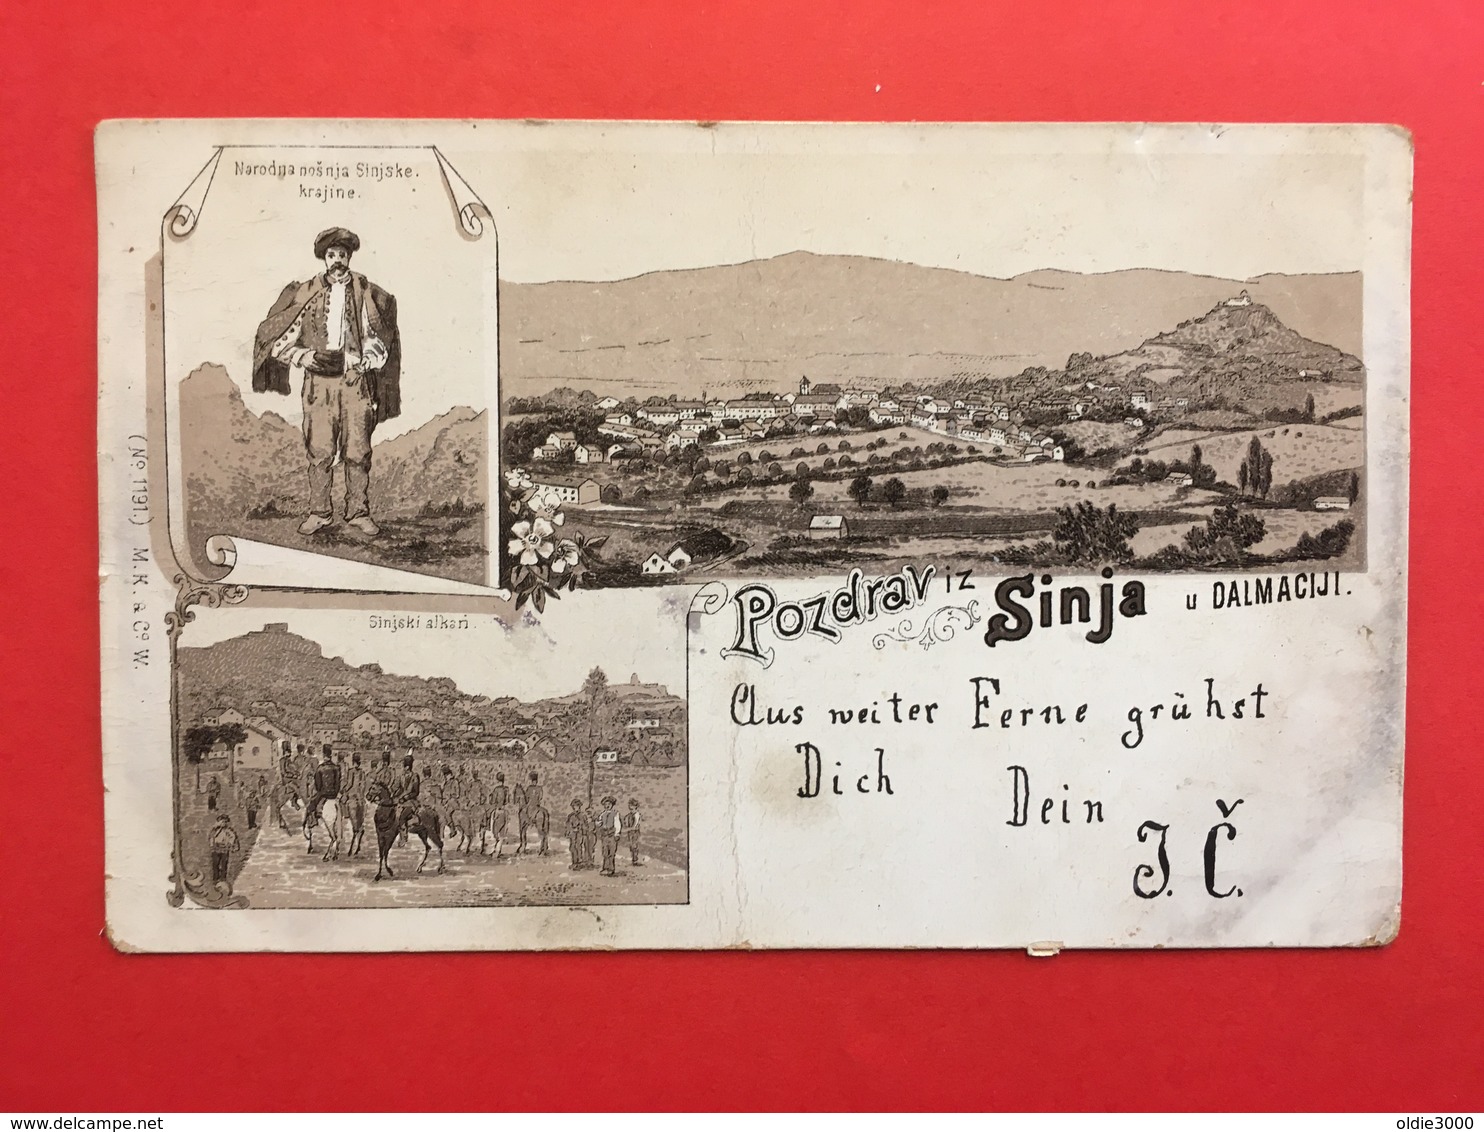 Narodna nošnja Sinjske.
krajine.
(No. 1191.) M. K. & Co. W.
Sinjski alkari.
Pozdrav iz Sinja u DALMACIJI.
Aus weiter Ferne grühst
Dich Dein
J. Č.
www.delcampe.net
oldie3000